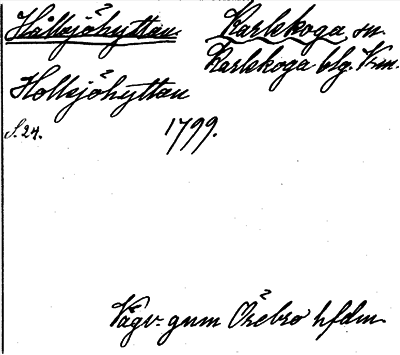 Hållsjöhyttan. Karlskoga sn.
Karlskoga blg. Vrm.
Hollsjöhyttan
S. 24. 1799.
Vägv. gnm Örebro hfdm.